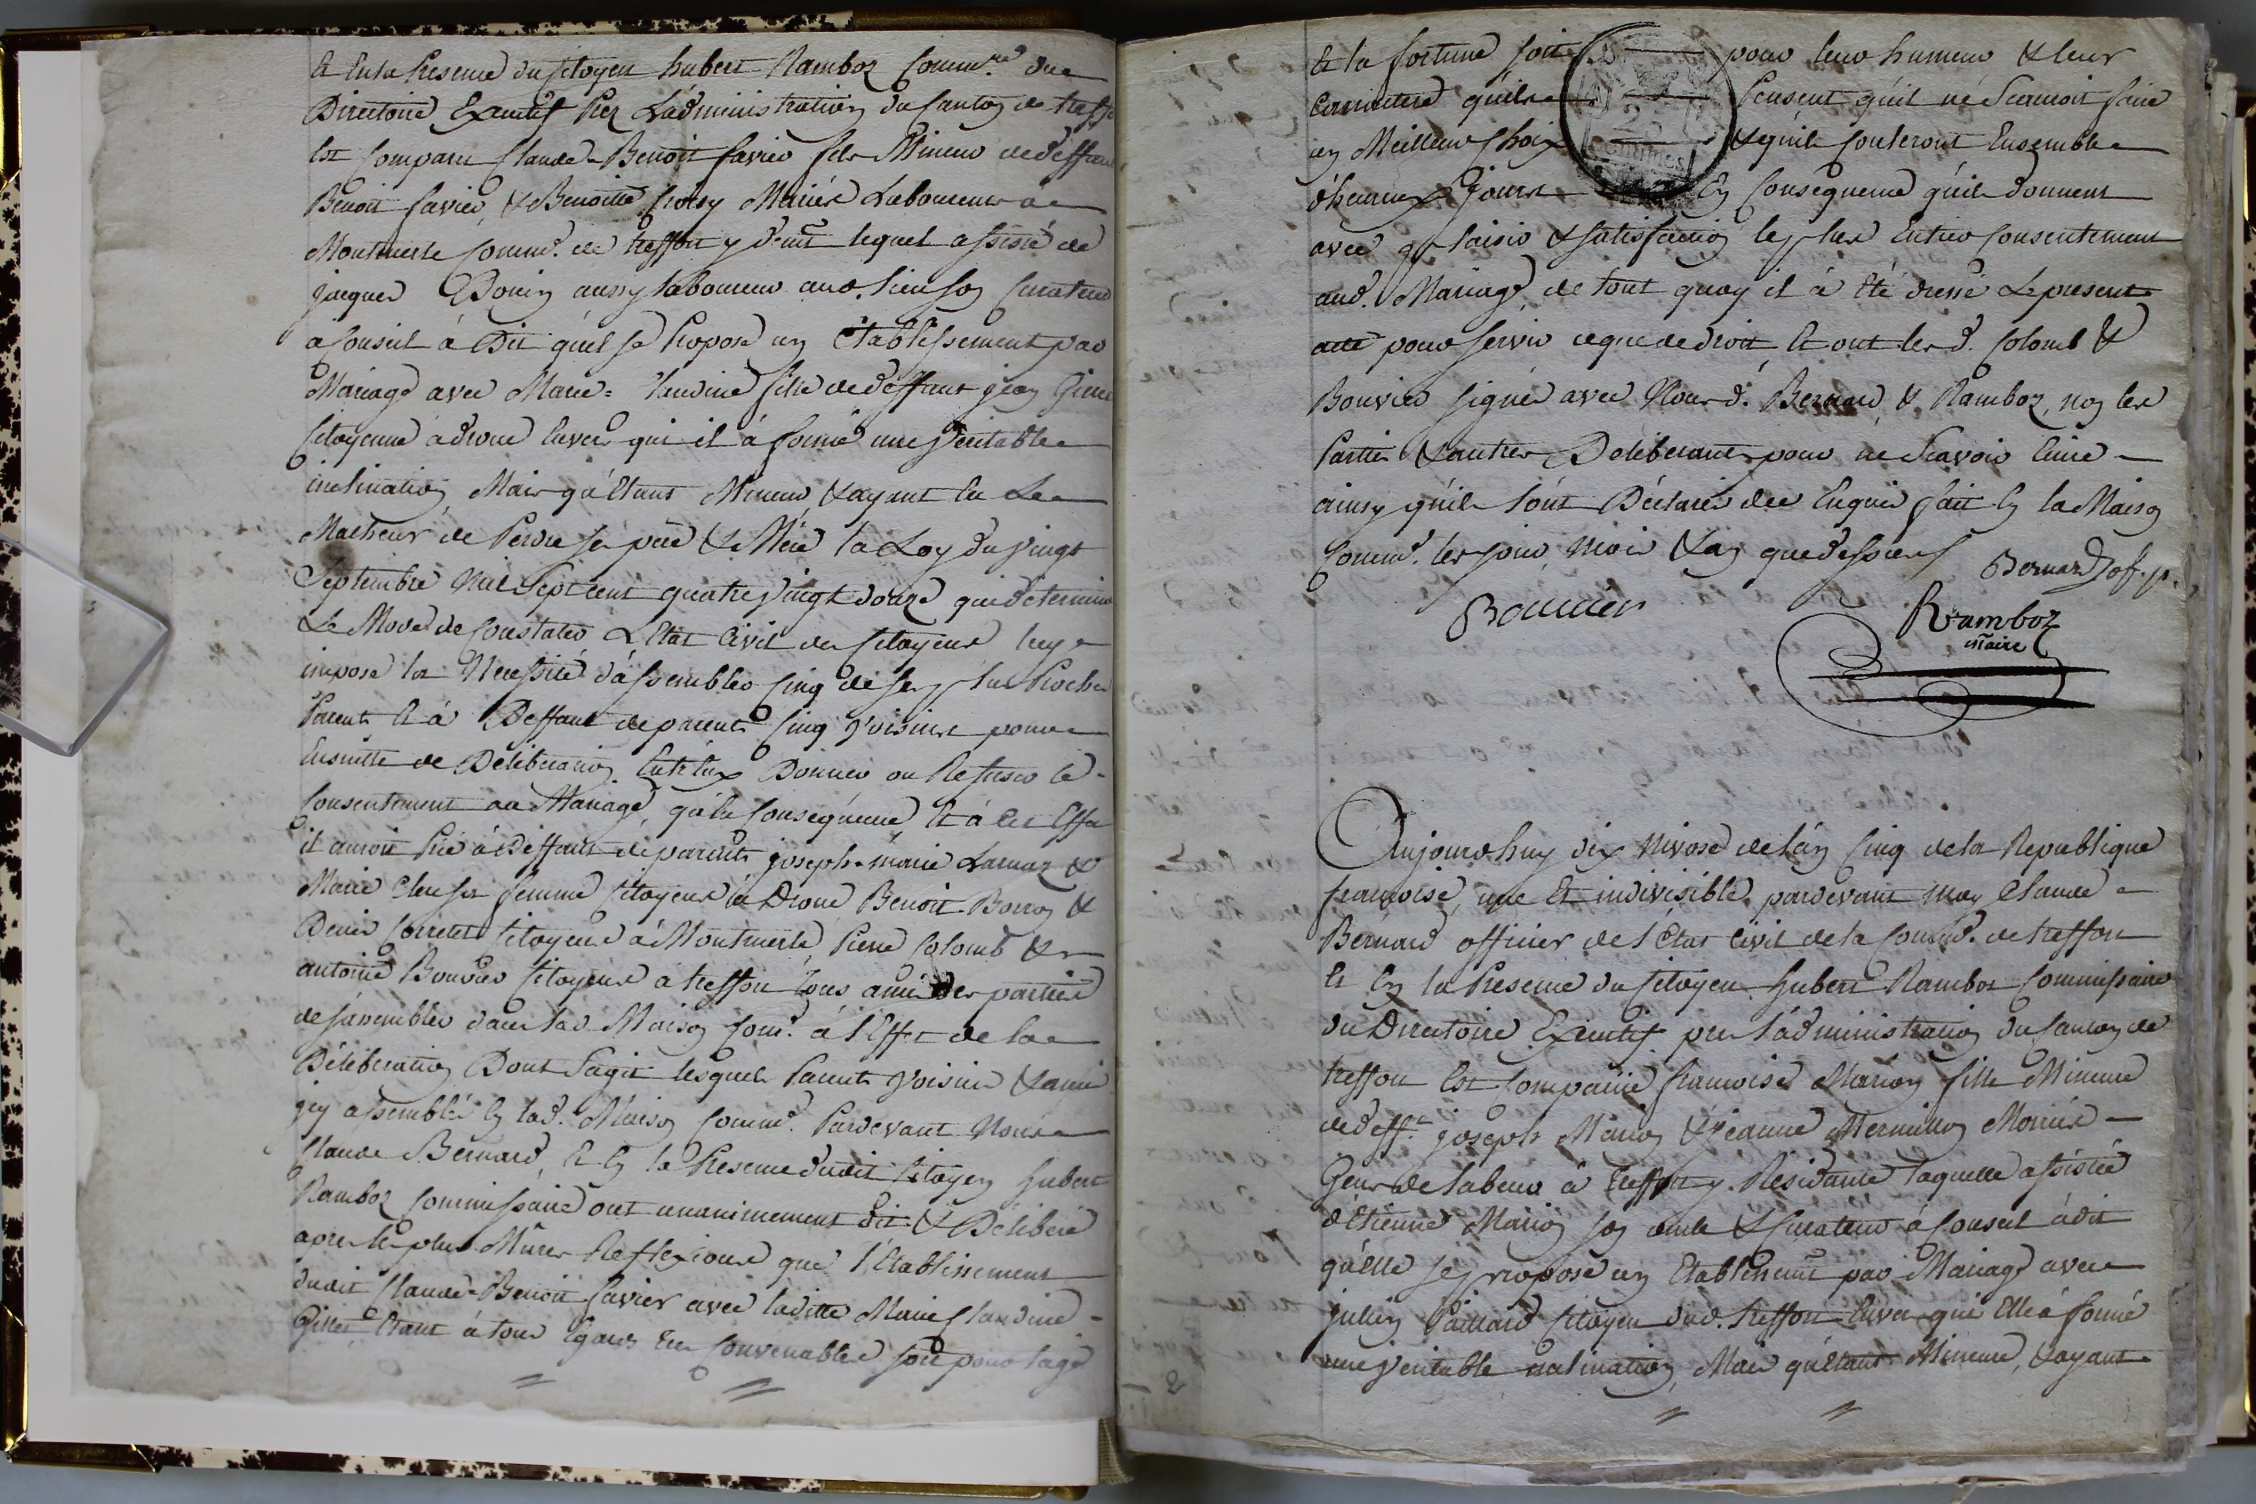 Et En la Presence du Citoyen hubert Ramboz Comm.re du
Directoire Executif Prez L'administration du Canton de treff
Est Comparu Claude Benoit favier fils Mineur de deffun
Benoit favier, & Benoitte Mariés Laboureurs a
Montmerle Comm.e de treffort y d.nt lequel assisté de
jacques aussy laboureur aud. lieu son Curateur
a Conseil à Dit qu'il se Propose un Etablissement par
Mariage avec Marie = Claudine fille de deffunt jean
Citoyenne a drom Envers qui il à formé une Veritable
inclination Mais qu'Etant Mineur & ayant Eu Le
Malheur de Perdre ses pere & Mere la Loy du Vingt
Septembre Mil Sept cent quatre Vingt douze qui determine
Le Mode de Constater L'Etat Civil des Citoyens luy
impose la Necessité d'assembler Cinq de ses plus Proches
Parents Et à Deffaut de parents Cinq Voisins pour
Ensuitte de Deliberation Entr'Eux Donner ou Refuser le
Consentement au Mariage, qu'En Consequence Et à Cet Effet
il auroit Prié à Deffaut de parents joseph = marie Larnaz &
Marie sa femme Citoyens à Drom Benoit Borron &
Denis Corretel Citoyens à Montmerle Pierre Colomb &
antoine Bouvier Citoyens à treffort tous amis des parties
de s'assembler dans lad. Maison Com.e à l'Effet de la
Deliberation Dont s'agit lesquels Parents Voisins & amis
icy assemblés En lad. Maison Comm.e Pardevant Nous
Claude Bernard, Et En la Presence dudit Citoyen hubert
Ramboz Commissaire ont unanimement dit & Deliberé
apres les plus Mures Reflexions que l'Etablissement
dudit Claude = Benoit favier avec laditte Marie Claudine
Etant à tous Egards tres Convenable soit pour l'age
Et la fortune soit pour leur humeur & leur
Caractere qu'ils Pensent qu'il ne Scauroit faire
un Meilleur Choix & qu'ils Couleront Ensemble
d'heureux jours En Consequence qu'ils donnent
avec plaisir & satisfaction le plus Entier Consentement
aud. Mariage de tout quoy il à Eté dressé Le present
acte pour servir ce que de droit Et ont les d. Colomb &
Bouvier signés avec Nous d. Bernard & Ramboz, non les
Parties & autres Deliberants pour ne Scavoir Ecrire
ainsy qu'ils l'ont Déclarés de ce Enquis fait En la Maison
Comm.e les jour, mois & an que dessus
Bernard of. p.
Bouvier
Ramboz
maire
25
Centimes
Aujourd'huy dix Nivose de l'an Cinq de la Republique
francoise, une Et indivisible pardevant moy Claude
Bernard officier de l'Etat Civil de la Comm.e de treffort
Et En la Presence du Citoyen hubert Ramboz Commissaire
du Directoire Executif pres l'administration du Canton de
treffort Est Comparue francoise Marion fille Mineure
de deff.t joseph Marion & jeanne Merminon Mariés
Gens de labeur à treffort y Residante laquelle assistée
d'Etienne Marion son oncle & Curateur à Conseil à dit
qu'elle se propose un Etablissement par Mariage avec
julien Paillard Citoyen dud. treffort Envers qui Elle à formé
une Veritable inclination, Mais qu'Etant Mineure, & ayant